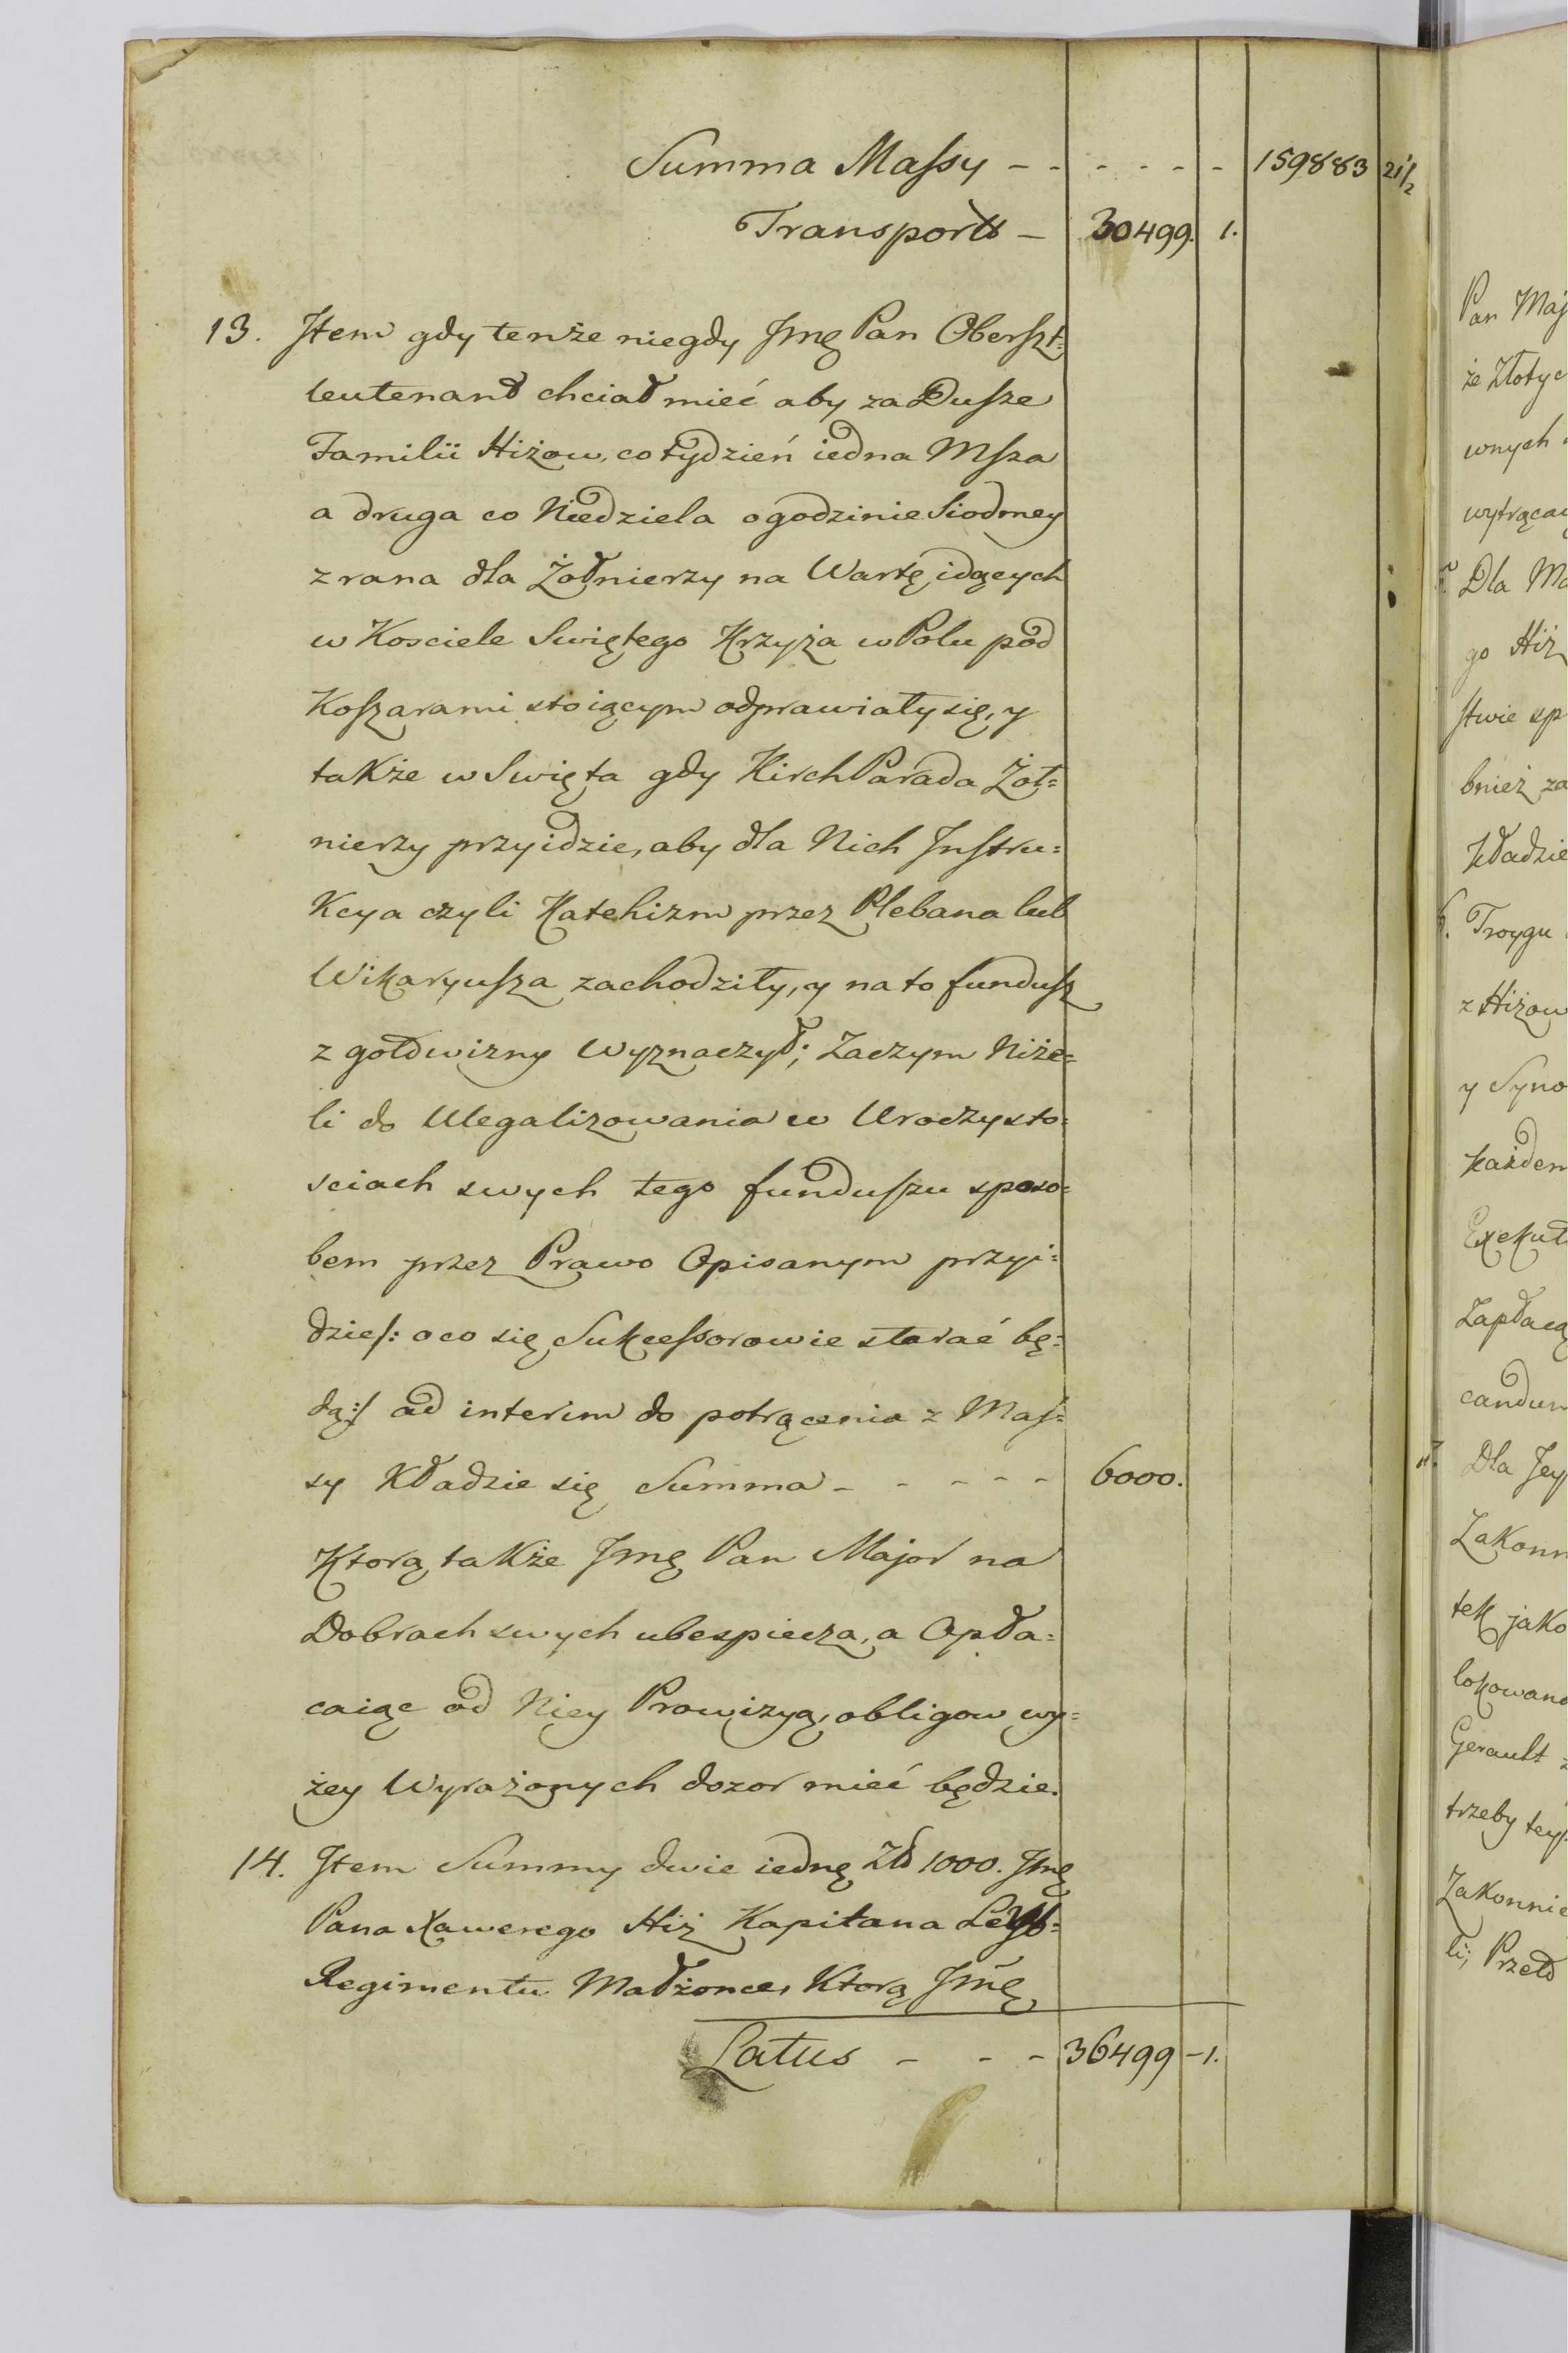 Summa Massy - - - - - - 159883 21 1/2
Transport - 30499. 1.
13. Item gdy tenże niegdy Jmę Pan Oberszt=
leutenant chciał mieć aby za Dusze
Familii Hiżow, co tydzień iedna Msza
a druga co Niedziela o godzinie Siodmey
z rana dla Żołnierzy na Wartę idących
w Kosciele Swiętego Krzyża w Polu pod
Koszarami stoiącym odprawiały się, y
także w Swięta gdy KirchParada Żoł=
nierzy przyidzie, aby dla Nich Instru=
kcya czyli Katehizm przez Plebana lub
Wikaryusza zachodziły, y na to fundusz
z gotowizny Wyznaczył; Zaczym Niże=
li do Ulegalizowania w Uroczysto=
sciach swych tego funduszu sposo=
bem przez Prawo Opisanym przyi=
dzie /: o co się Sukcessorowie starać bę=
dą :/ ad interim do potrącenia z Mas=
sy Kładzie się Summa - - - - - 6000.
Ktorą także Jmę Pan Major na
Dobrach swych ubespiecza, a Opła=
caiąc od Niey Prowizyą, obligow wy=
żey Wyrażonych dozor mieć będzie.
14. Item Summy dwie iedną Zł 1000. Jmę
Pana Xawerego Hiż Kapitana Leyb=
Regimentu Małżonce, Ktorą Jmę
Latus - - - 36499 - 1.
Pan Maj
że Złotyc
wnych
wytrącaią
Dla Ma
go Hiż
stwie sp
bnież za
Kładzie
Troygu
z Hiżow
y Syno
każdem
Exekut
Zapłacą
candum
Dla Jey
Zakonn
tek jako
lokowan
Gerault
trzeby tey
Zakonnic
li; Przeło